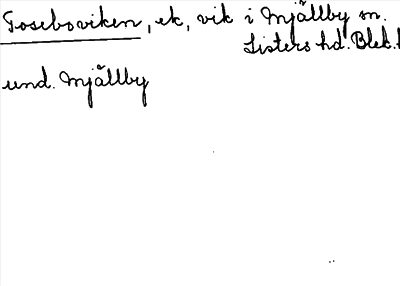 Toseboviken, ek, vik i Mjällby sn.
Listers hd. Blek. l
und. Mjällby